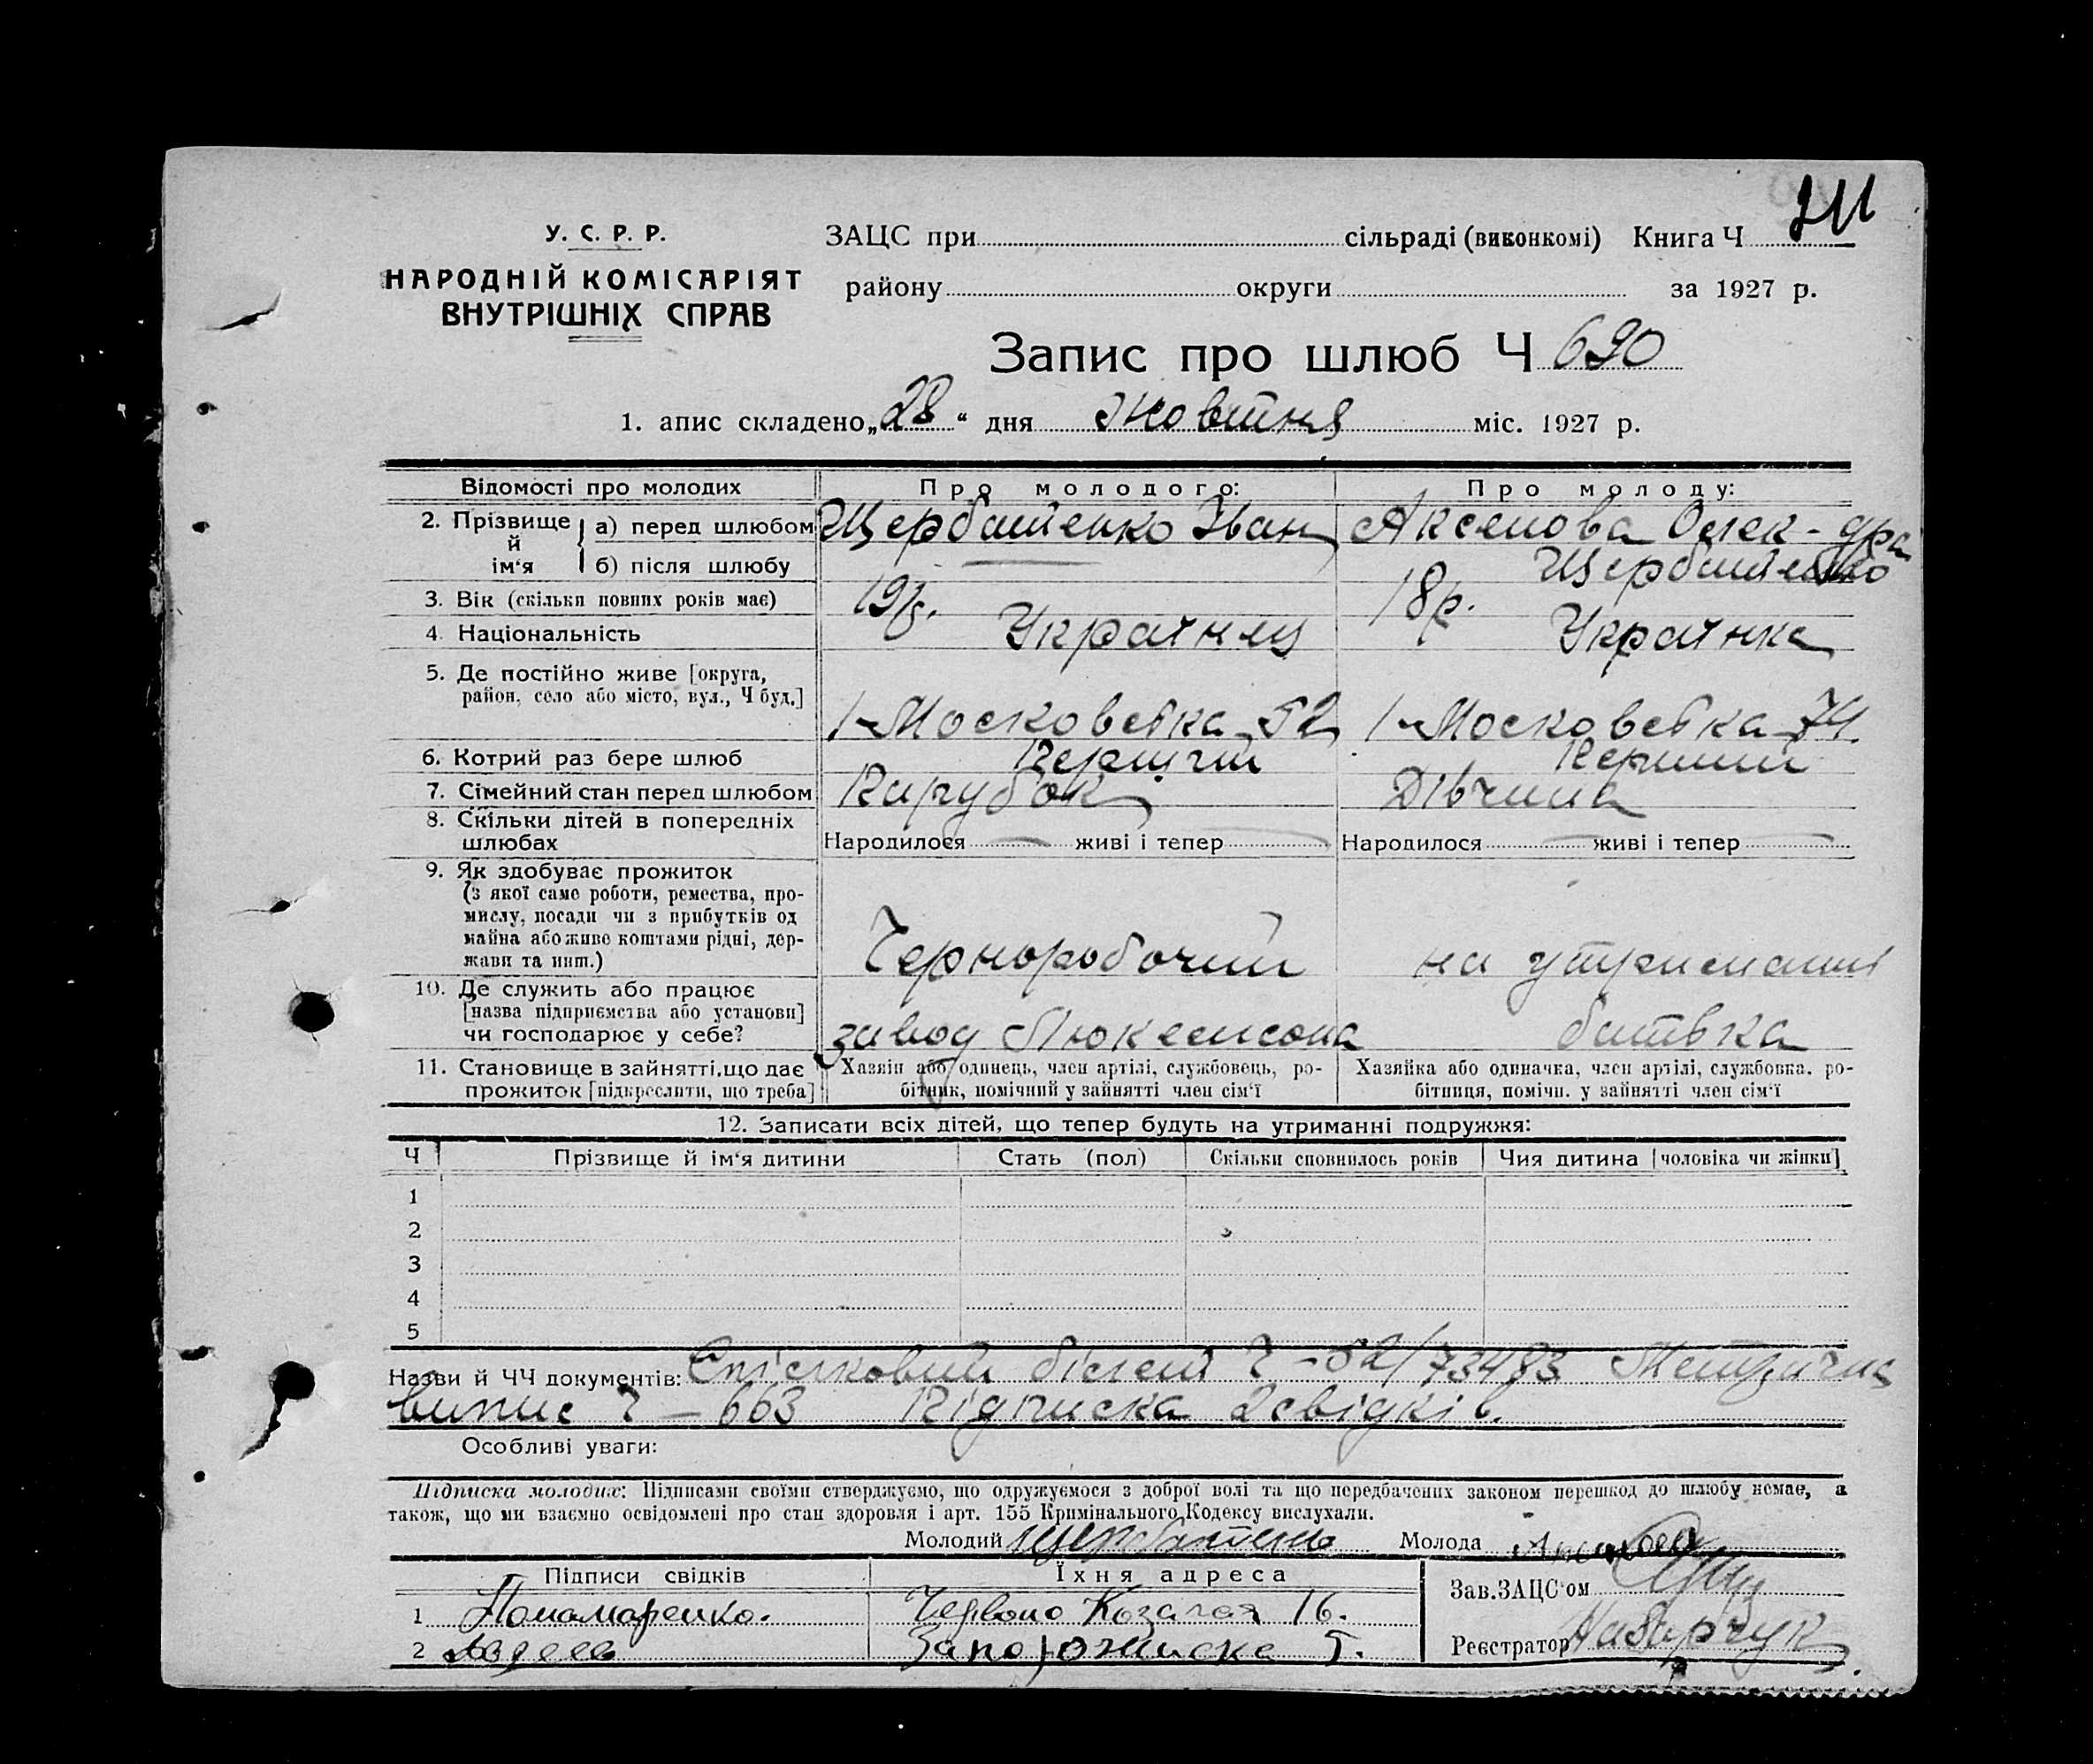 У. С. Р. Р.
НАРОДНІЙ КОМІСАРІЯТ
ВНУТРІШНІХ СПРАВ
ЗАЦС при сільраді (виконкомі) Книга Ч
району округи за 1927 р.
Запис про шлюб Ч 690
1. апис складено „28“ дня Жовтня міс. 1927 р.
Відомості про молодих Про молодого: Про молоду:
2. Прізвище й ім'я а) перед шлюбом Щербатенко Іван Аксенова Олек-дра
б) після шлюбу — Щербатенко
3. Вік (скільки повних років має) 19 р. 18 р.
4. Національність Украінец Украінка
5. Де постійно живе [округа,
район, село або місто, вул., Ч буд.] 1-Московська 52 1-Московська 74.
6. Котрий раз бере шлюб Перший Перший
7. Сімейний стан перед шлюбом Парубок Дівчина
8. Скільки дітей в попередніх
шлюбах Народилося — живі і тепер — Народилося — живі і тепер —
9. Як здобуває прожиток
(з якої саме роботи, ремества, про-
мислу, посади чи з прибутків од
майна або живе коштами рідні, дер-
жави та инш.) Черноробочий на утриманні
10. Де служить або працює
[назва підприємства або установи]
чи господарює у себе? завод батька
11. Становище в зайнятті, що дає
прожиток [підкреслити, що треба]
Хазяїн або одинець, член артілі, службовець, ро-
бітник, помічний у зайнятті член сім'ї
Хазяйка або одиначка, член артілі, службовка, ро-
бітниця, помічн. у зайнятті член сім'ї
12. Записати всіх дітей, що тепер будуть на утриманні подружжя:
Ч Прізвище й ім'я дитини Стать (пол) Скільки сповнилось років Чия дитина [чоловіка чи жінки]
1
2
3
4
5
Назви й ЧЧ документів: Спілковий білет Ч – 52/73483 Метрична
випис Ч – 663 Підписка 2 свідків.
Особливі уваги:
Підписка молодих: Підписами своїми стверджуємо, що одружуємося з доброї волі та що передбачених законом перешкод до шлюбу немає, а
також, що ми взаємно освідомлені про стан здоровля і арт. 155 Кримінального Кодексу вислухали.
Молодий Щербатенко Молода
Підписи свідків Їхня адреса Зав. ЗАЦС'ом
1 Понамаренко. Червоно Козачая 16.
2 Авдеев Реєстратор